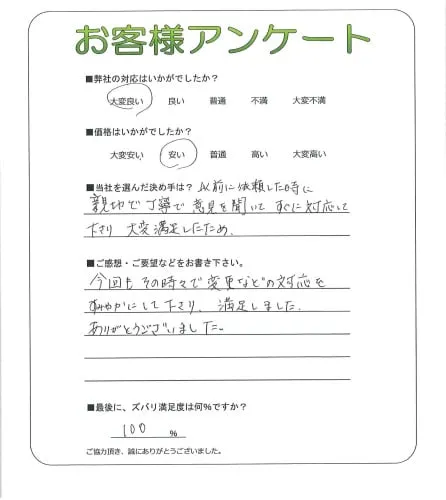 お客様アンケート
■弊社の対応はいかがでしたか?
大変良い 良い 普通 不満 大変不満
■価格はいかがでしたか?
大変安い 安い 普通 高い 大変高い
■当社を選んだ決め手は? 以前に依頼した時に
親切で丁寧で意見を聞いて すぐに対応して
下さり 大変満足したため.
■ご感想・ご要望などをお書き下さい。
今回も その時々で変更などの対応を
すみやかにして下さり、満足しました.
ありがとうございました。
■最後に、ズバリ満足度は何%ですか?
100 %
ご協力頂き、誠にありがとうございました。